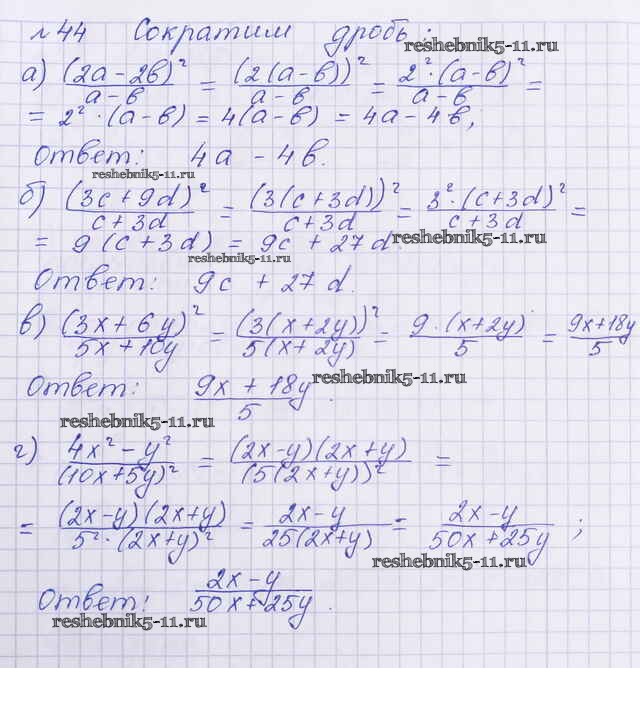 №44 Сократим дробь:
reshebnik5-11.ru
а) (2a - 2b)² / (a - b) = (2(a - b))² / (a - b) = 2² · (a - b)² / (a - b) =
= 2² · (a - b) = 4(a - b) = 4a - 4b;
Ответ: 4a - 4b.
reshebnik5-11.ru
б) (3c + 9d)² / (c + 3d) = (3(c + 3d))² / (c + 3d) = 3² · (c + 3d)² / (c + 3d) =
= 9(c + 3d) = 9c + 27d.
reshebnik5-11.ru
reshebnik5-11.ru
Ответ: 9c + 27d.
в) (3x + 6y)² / (5x + 10y) = (3(x + 2y))² / (5(x + 2y)) = 9 · (x + 2y) / 5 = (9x + 18y) / 5
reshebnik5-11.ru
Ответ: (9x + 18y) / 5.
reshebnik5-11.ru
г) (4x² - y²) / (10x + 5y)² = (2x - y)(2x + y) / (5(2x + y))² =
= (2x - y)(2x + y) / (5² · (2x + y)²) = (2x - y) / (25(2x + y)) = (2x - y) / (50x + 25y);
reshebnik5-11.ru
Ответ: (2x - y) / (50x + 25y).
reshebnik5-11.ru